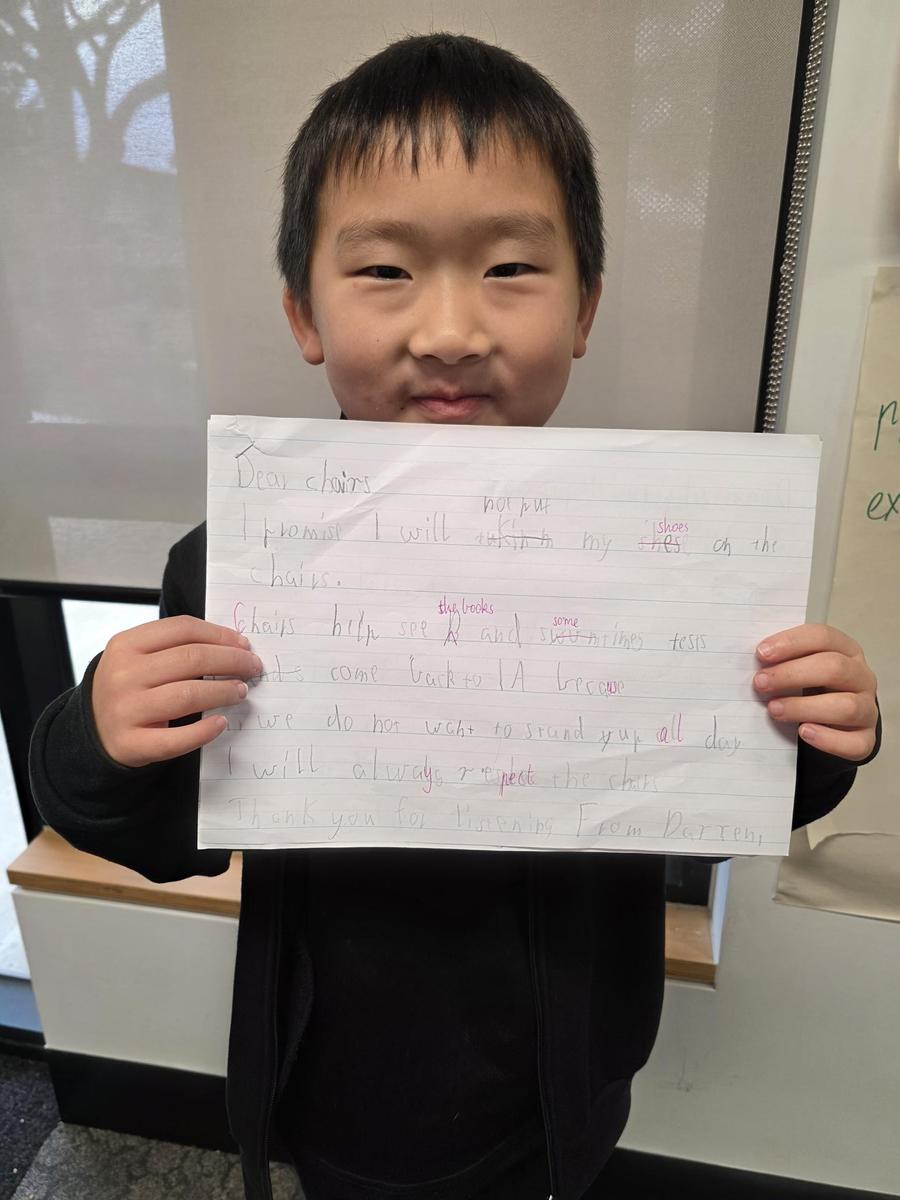 Dear chairs
not put
I promise I will my shoes on the
chairs.
the books
Chairs help see and some times tests
come back to 1A because
we do not waht to stand yup all day
I will always respect the chairs
Thank you for listening From Darren,
ex